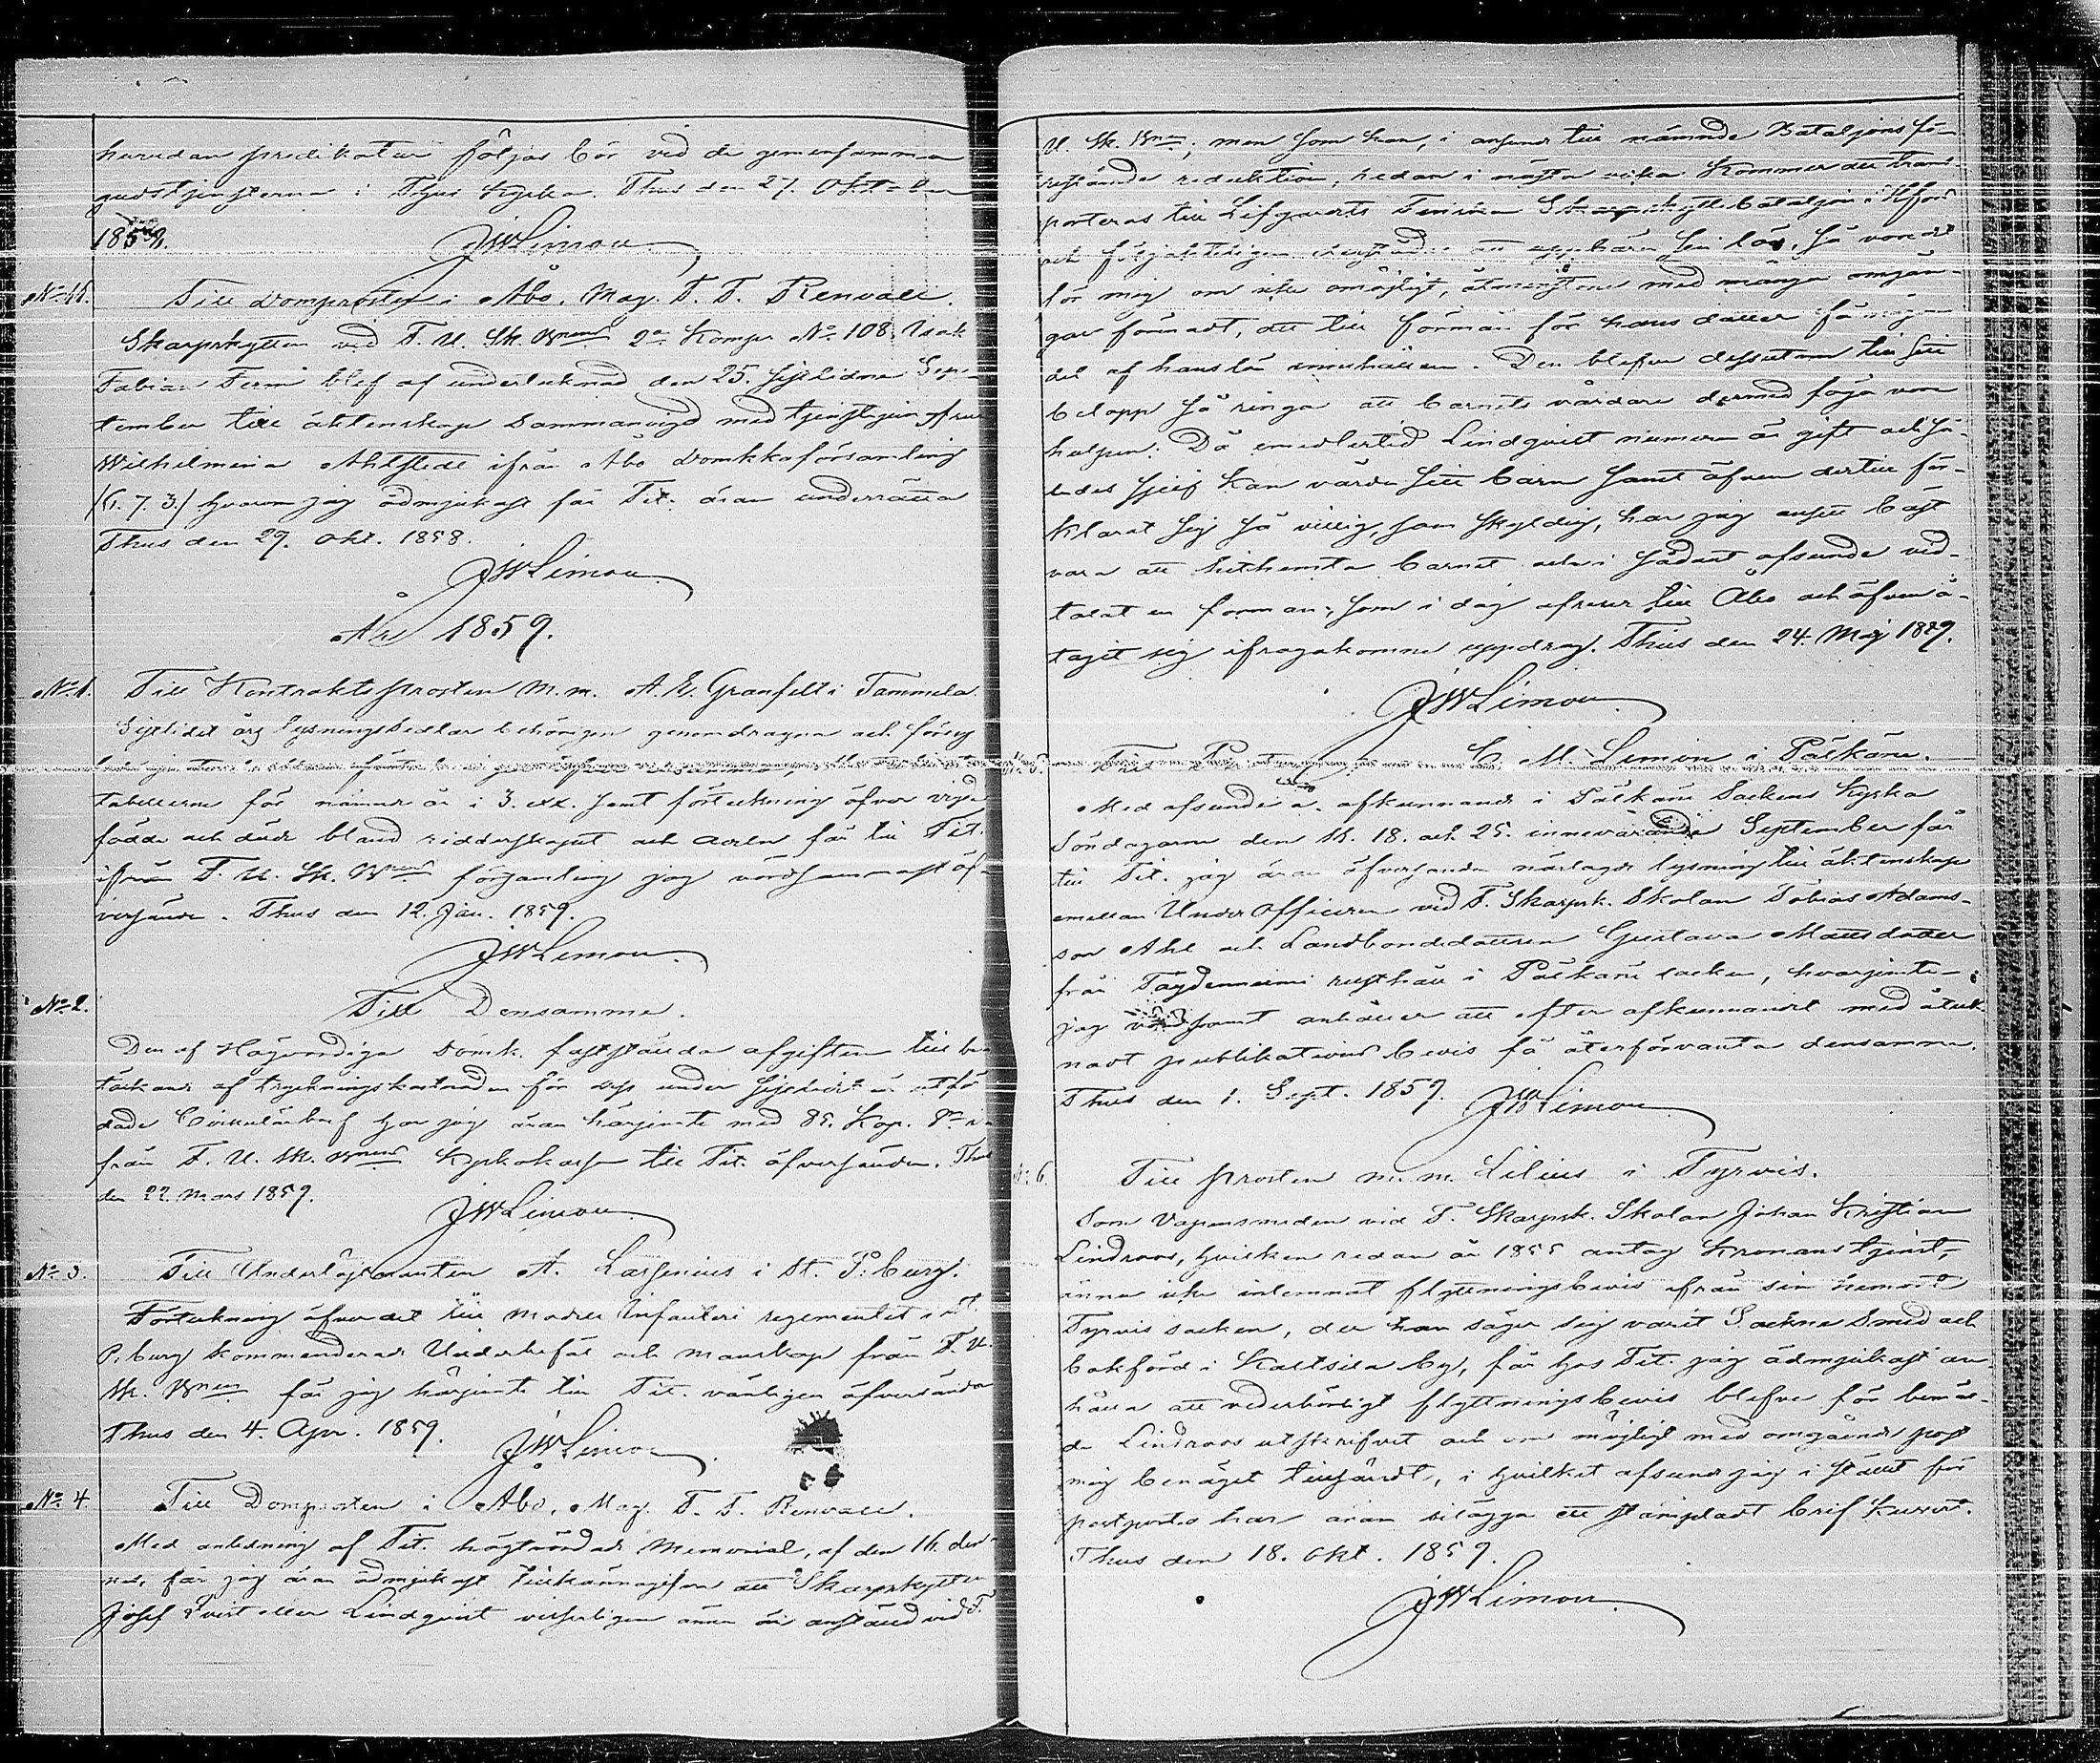 hurudan predikotur följas bör vid de gemensamma
gudstjensterna i Thus Kyrka. Thus den 27. Oktober
1858.
JWLimon
No 48.
Till Domprosten i Åbo, Mag. T. T. Renvall.
Skarpskytten vid T. U. Sk. Bnens 2a Komp. No 108 Isak
Fabian Fermi blef af undertecknad den 25. sistlidne Sep-
tember till äktenskap sammanvigd med tjensteqvinna
Wilhelmina Ahlstedt ifrån Åbo Domkkoförsamling
hvarom jag ödmjukast får Tit. äran underrätta
Thus den 29. Okt. 1858.
JWLimon
År 1859.
No 1.
Till Kontraktsprosten m. m. A. E. Granfelt i Tammela.
Sistlidet års lysningssedlar behörigen genomdragna och
tabellerna för nämnde år i 3. ex. samt förteckning öfver vigde
födde och döde bland ridderskapet och adeln får till Tit.
ifrån T. U. Sk. Bnens församling jag vördsammast öf-
versända. Thus den 12. Jan. 1859.
JWLimon.
No 2.
Till Densamme.
Den af Högvördiga Domk. fastställda afgiften till be-
täckande af tryckningskostnaden för dess under sistlidet år utfär-
dade Cirkulärbref har jag äran härjemte med 85. Kop. Sr i-
från T. U. Sk. Bnens Kyrkokassa till Tit. öfversända. Thus
den 22 Mars 1859.
JWLimon
No 3.
Till Underlöjtnanten A. Largenius i St. P:burg.
Förteckning öfver det till Modell Infanteri regementet i St.
P:burg kommenderade Underbefäl och manskap från T. U.
Sk. Bnen får jag härjemte till Tit. vänligen öfversända
Thus den 4. Apr. 1859.
JWLimon.
No 4.
Till Domprosten i Åbo, Mag. T. T. Renvall.
Med anledning af Tit. högtärade Memorial, af den 16. den-
nes, får jag äran ödmjukast tillkännagifva att Skarpskytten
Josef Qvist eller Lindqvist visserligen ännu är anställd vid T.
U. Sk. Bnen; men som han, i anseende till nämnde Bataljons fö-
restående reduktion, redan i nästa vecka kommer att trans-
porteras till Lifgardets Finska Skarpskyttebataljon i Hfors
och följaktligen derstädes att uppbära sin lön, så vore det
för mig om icke omöjligt, åtminstone med många omgån-
gar förenadt, att till förmån för hans dotter få någon
del af hans lön innehållen. Den blefve dessutom till sitt
belopp så ringa att barnets vårdare dermed föga vore
hulpen. Då emedlertid Lindqvist numera är gift och så-
ledes sjelf kan vårda sitt barn samt äfven dertill för-
klarat sig så villig, som skyldig, har jag ansett bäst
vara att hithemta barnet och i sådant afseende vid-
talat en forman, som i dag afreser till Åbo och äfven å-
tagit sig ifrågakomne uppdrag. Thus den 24. Maj 1859.
JWLimon.
No 5.
Till C. M. Limon i Pälkäne.
Med afseende å afkunnande i Pälkäne Sockens Kyrka
Söndagarne den 11. 18. och 25. innevarande September får
till Tit. jag äran öfversända närlagde lysning till äktenskap
emellan Under Officeren vid T. Skarpsk. Skolan Tobias Adams-
son Ahl och Landbondedottren Gustava Mattsdotter
från Taydenniemi rusthåll i Pälkäne socken, hvarjemte
jag vördsamt anhåller att efter afkunnandet med åteck-
nadt publikations bevis få återförvänta densamma.
Thus den 1. Sept. 1859.
JWLimon
No 6.
Till Prosten m. m. Lilius i Tyrvis.
Som Vapensmeden vid T. Skarpsk. Skolan Johan Kristian
Lindroos, hvilken redan år 1855 antog Kronans tjenst,
ännu icke inlemnat flyttningsbevis ifrån sin hemort
Tyrvis socken, der han säger sig varit Sockne Smed och
bokförd i Kaltsila by, får hos Tit. jag ödmjukast an-
hålla att vederbörligt flyttningsbevis blefve för bemäl-
de Lindroos utskrifvet och om möjligt med omgående post
mig benäget tillsändt, i hvilket afseende jag i stället för
postporto har äran bilägga ett stämpladt bref Kuvert.
Thus den 18. Okt. 1859.
JWLimon.